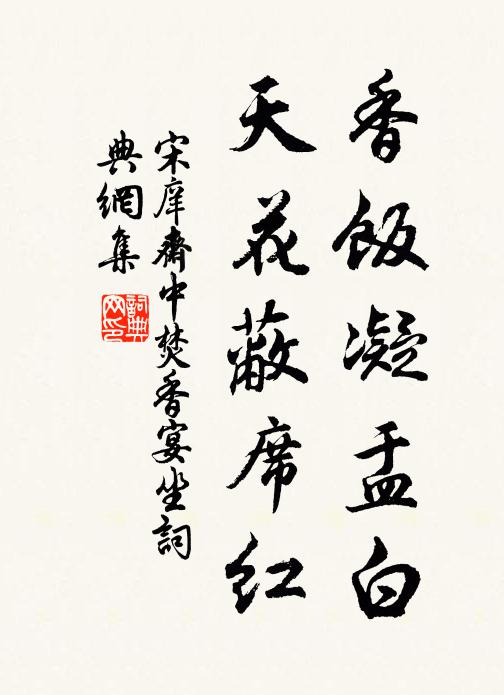 香飯凝盂白
天花蔽席紅
宋庠齋中焚香宴坐詞
典網集
詞典
网印